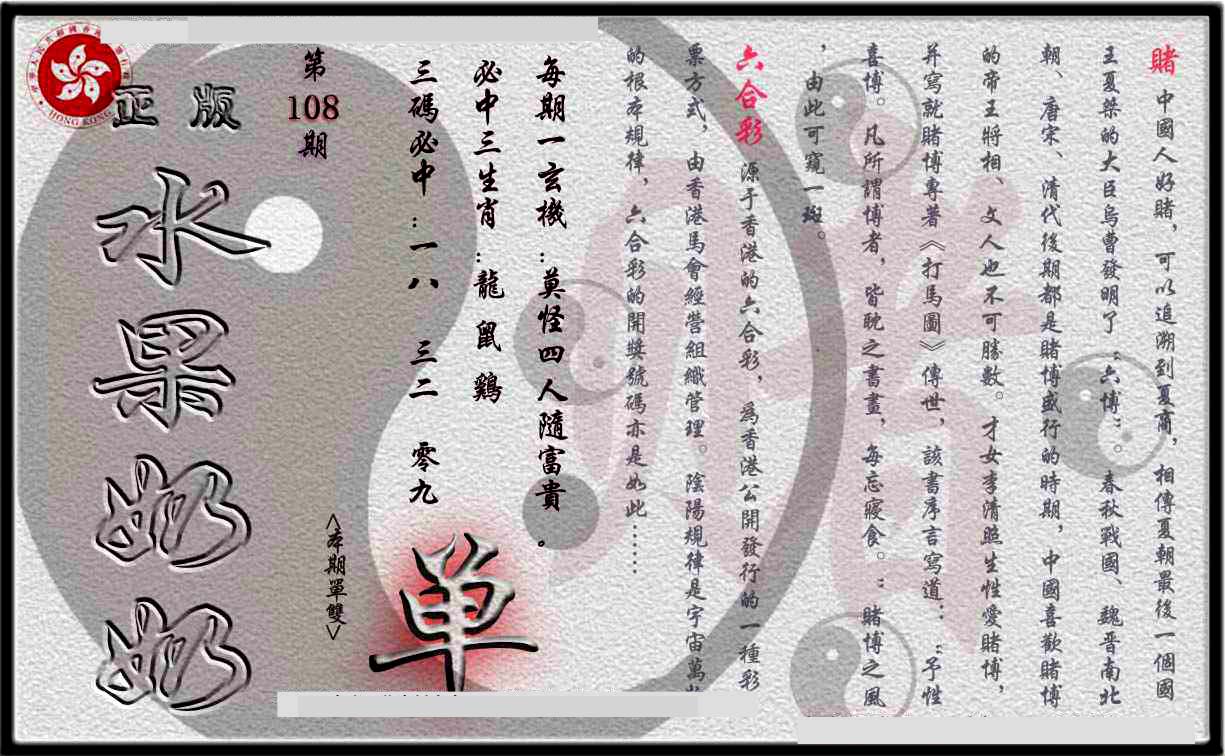 賭 中國人好賭，可以追溯到夏商，相傳夏朝最後一個國
王夏桀的大臣烏曹發明了“六博”。春秋戰國、魏晋南北
朝、唐宋、清代後期都是賭博盛行的時期，中國喜歡賭博
的帝王將相、文人也不可勝數。才女李清照生性愛賭博，
并寫就賭博專著《打馬圖》傳世，該書序言寫道：“予性
喜博。凡所謂博者，皆耽之書畫，每忘寢食。”賭博之風
，由此可窺一斑。
六合彩 源于香港的六合彩，為香港公開發行的一種彩
票方式，由香港馬會經營組織管理。陰陽規律是宇宙萬
的根本規律，六合彩的開獎號碼亦是如此……
每期一玄機：莫怪四人隨富貴。
必中三生肖：龍 鼠 鷄
三碼必中：一八 三二 零九
單
<本期單雙>
第
108
期
正版
水果奶奶
HONG KONG